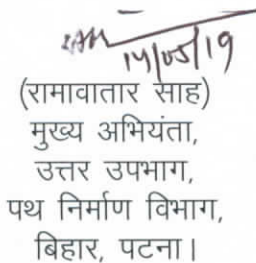 14/05/19
(रामावातार साह)
मुख्य अभियंता,
उत्तर उपभाग,
पथ निर्माण विभाग,
बिहार, पटना।